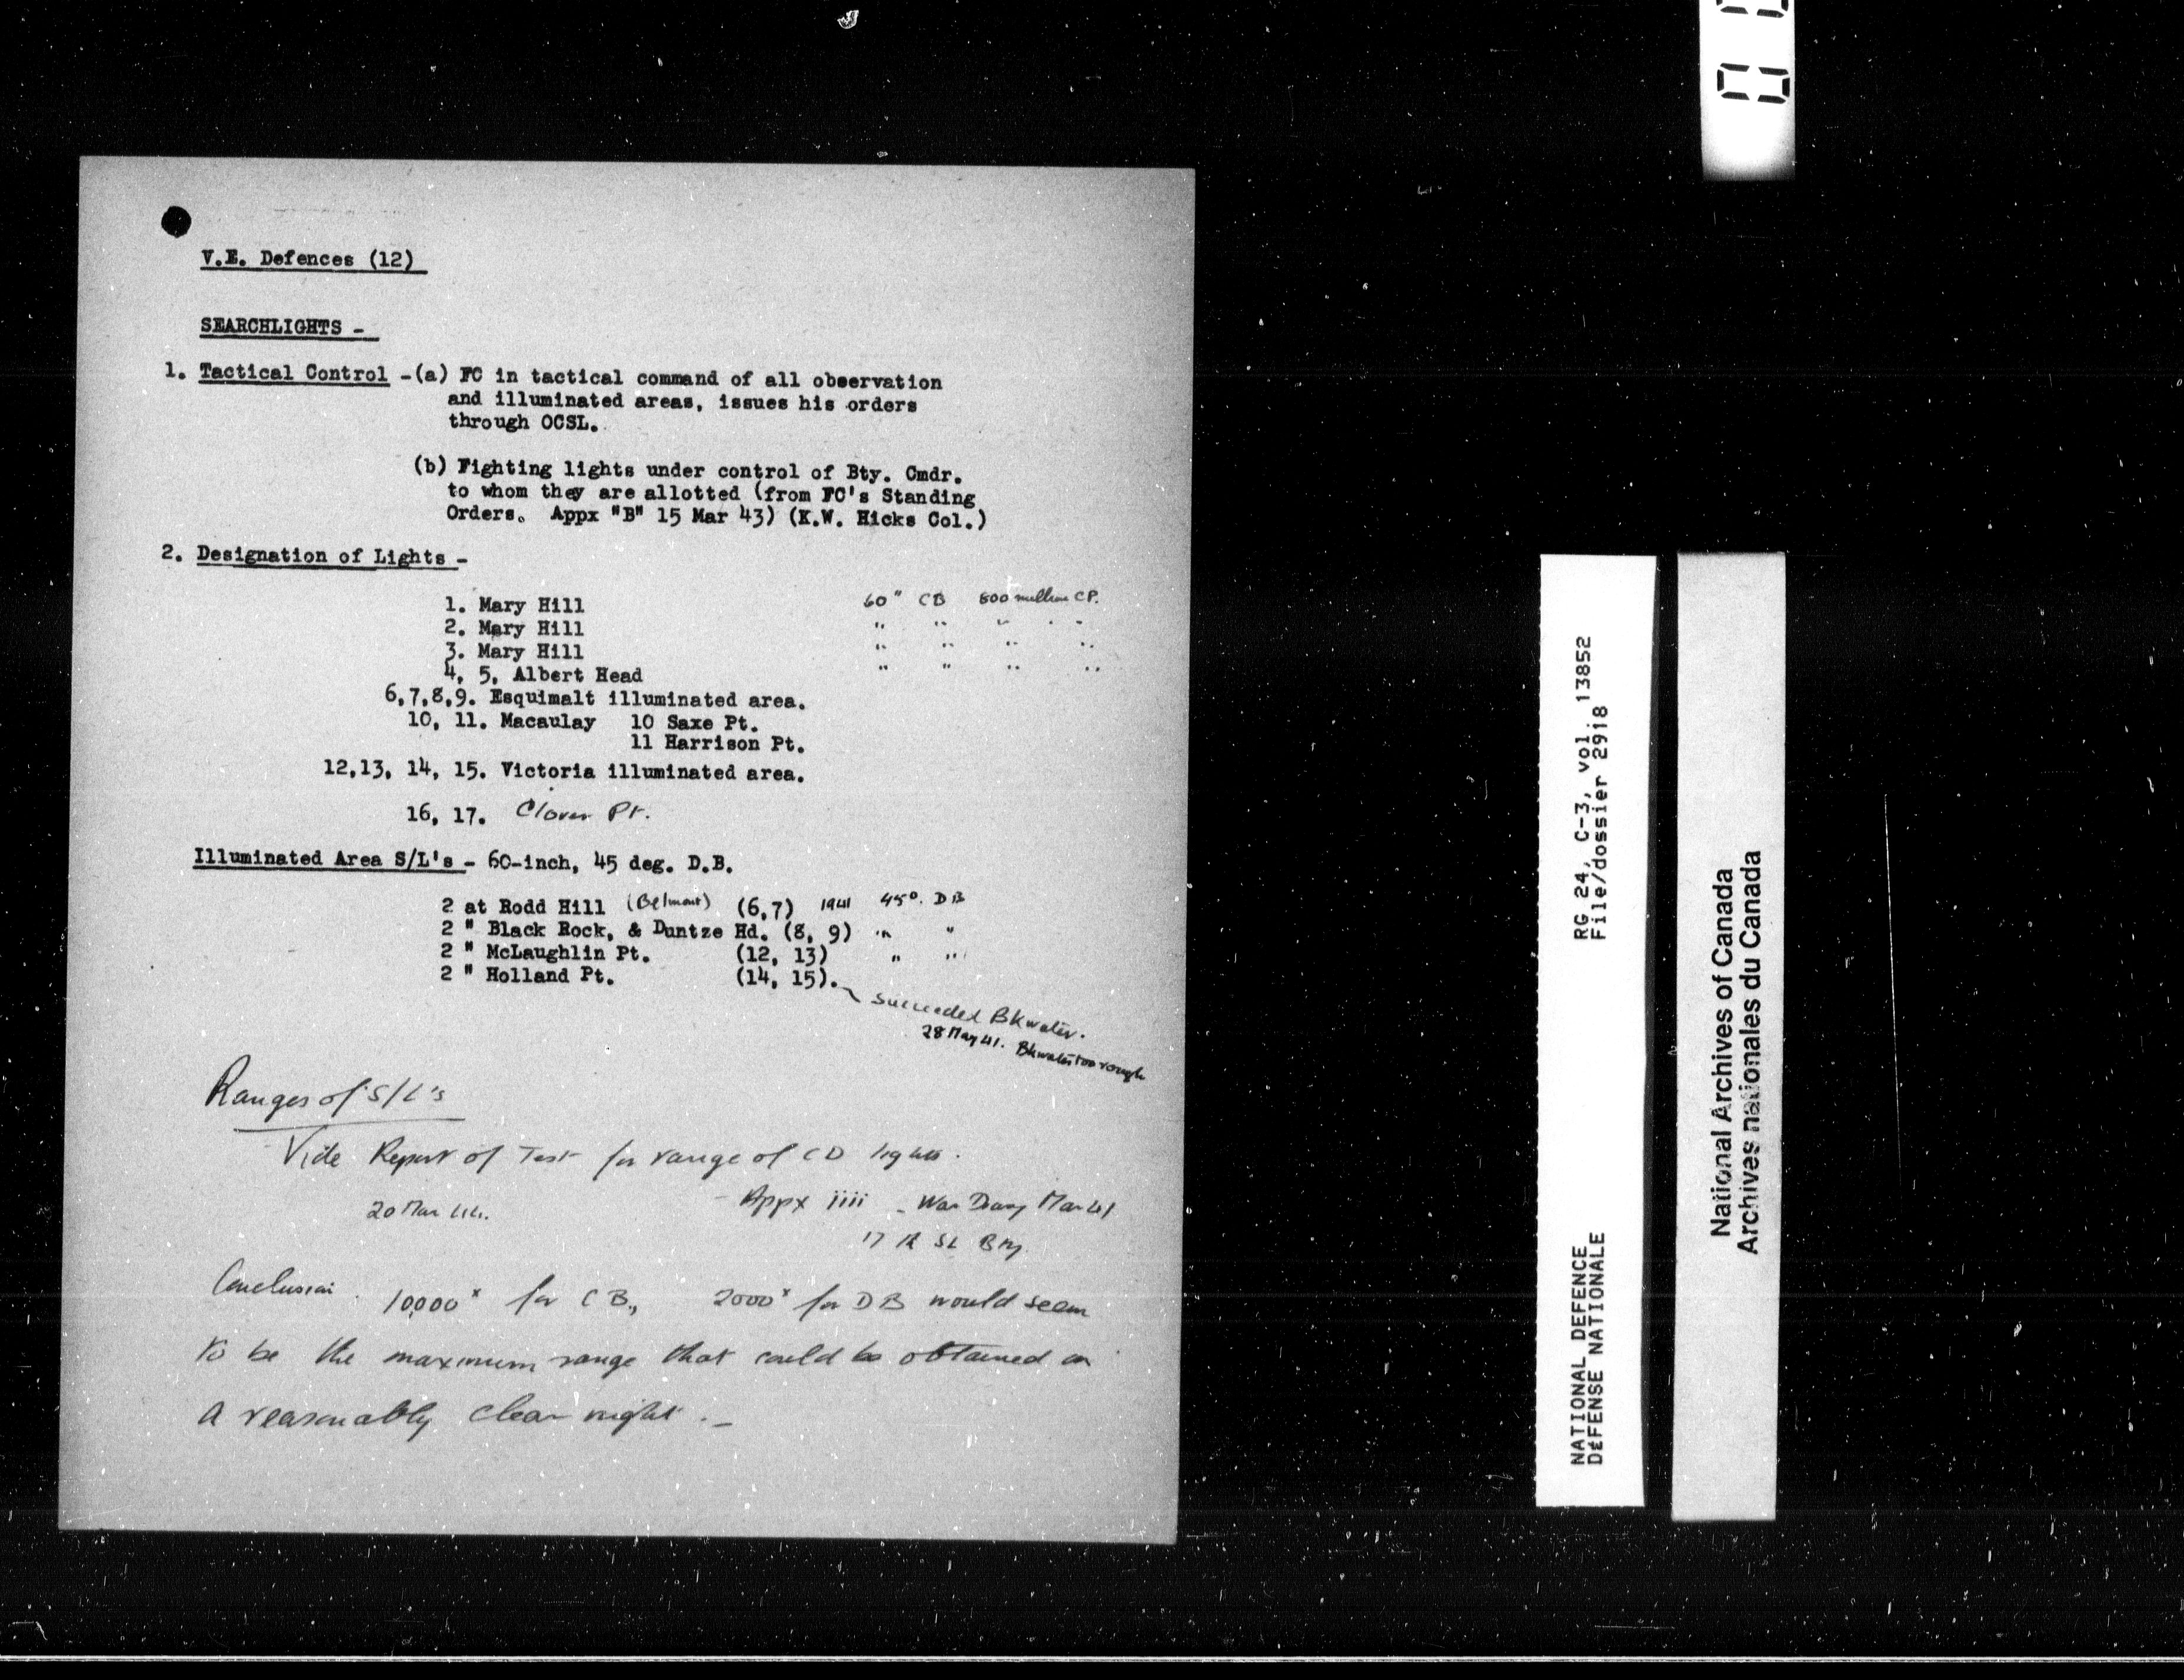 V.E. Defences (12)
SEARCHLIGHTS -
1. Tactical Control -(a) FC in tactical command of all observation
and illuminated areas, issues his orders
through OCSL.
(b) Fighting lights under control of Bty. Cmdr.
to whom they are allotted (from FC's Standing
Orders. Appx "B" 15 Mar 43) (K.W. Hicks Col.)
2. Designation of Lights -
1. Mary Hill 60" CB 800 million CP.
2. Mary Hill " " " " "
3. Mary Hill " " " "
4, 5, Albert Head " " " "
6,7,8,9. Esquimalt illuminated area.
10, 11. Macaulay 10 Saxe Pt.
11 Harrison Pt.
12,13, 14, 15. Victoria illuminated area.
16, 17. Clover Pt.
Illuminated Area S/L's - 60-inch, 45 deg. D.B.
2 at Rodd Hill (Belmont) (6,7) 1941 45°. DB
2 " Black Rock, & Duntze Hd. (8, 9) " "
2 " McLaughlin Pt. (12, 13) " "
2 " Holland Pt. (14, 15).
Succeeded Bkwater.
28 May 41. Bkwater too rough
Ranges of S/L's
Vide Report of Test for range of CD lights.
20 Mar 44. Appx iiii - War Diary Mar 41
17 SL Bty
Conclusion. 10,000ˣ for CB., 2000ˣ for DB would seem
to be the maximum range that could be obtained on
a reasonably clear night. -
RG 24, C-3, vol. 13852
File/dossier 2918
NATIONAL DEFENCE
DéFENSE NATIONALE
National Archives of Canada
Archives nationales du Canada